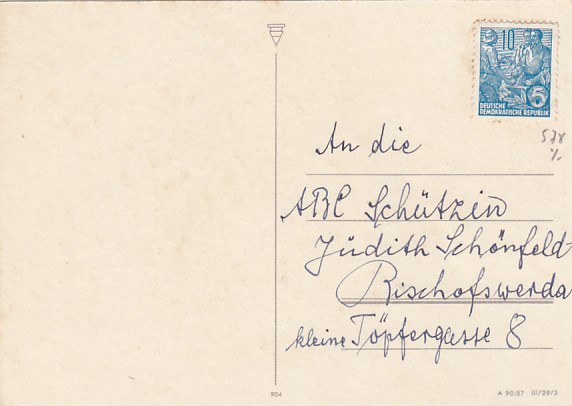 10
DEUTSCHE
DEMOKRATISCHE REPUBLIK
5
578
%
An die
ABC Schützin
Judith Schönfeld
Bischofswerda
kleine Töpfergasse 8
904
A 90/57 III/29/3